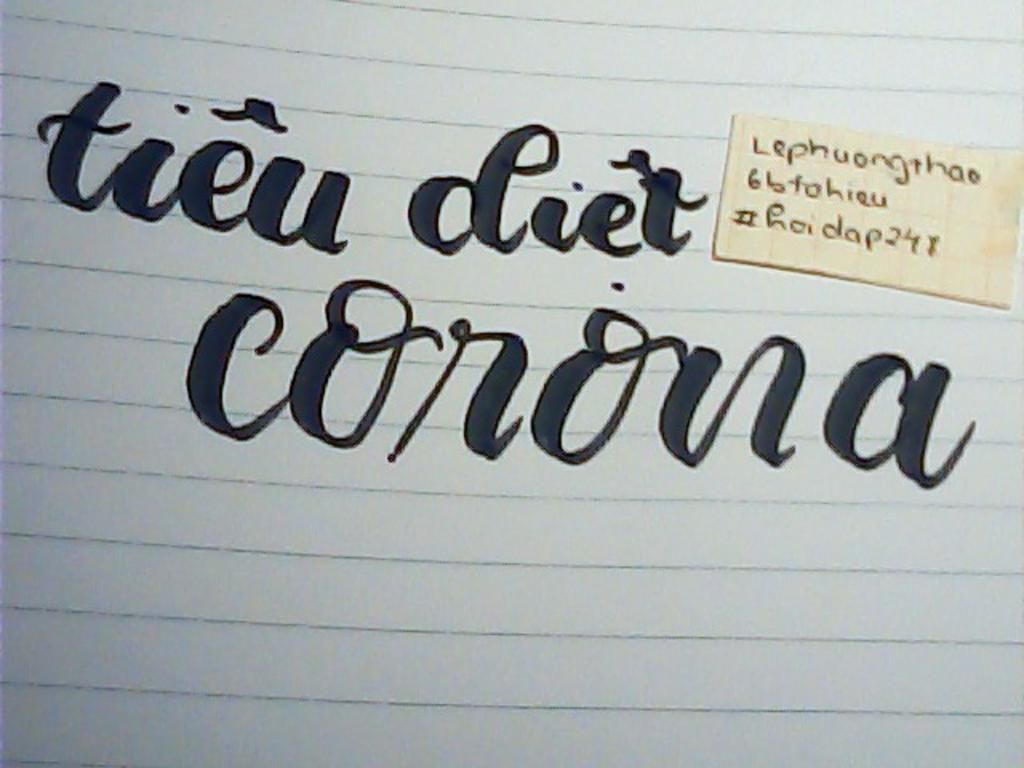 tiêu diệt
corona
Lephuongthao
6btohieu
#hoidap248